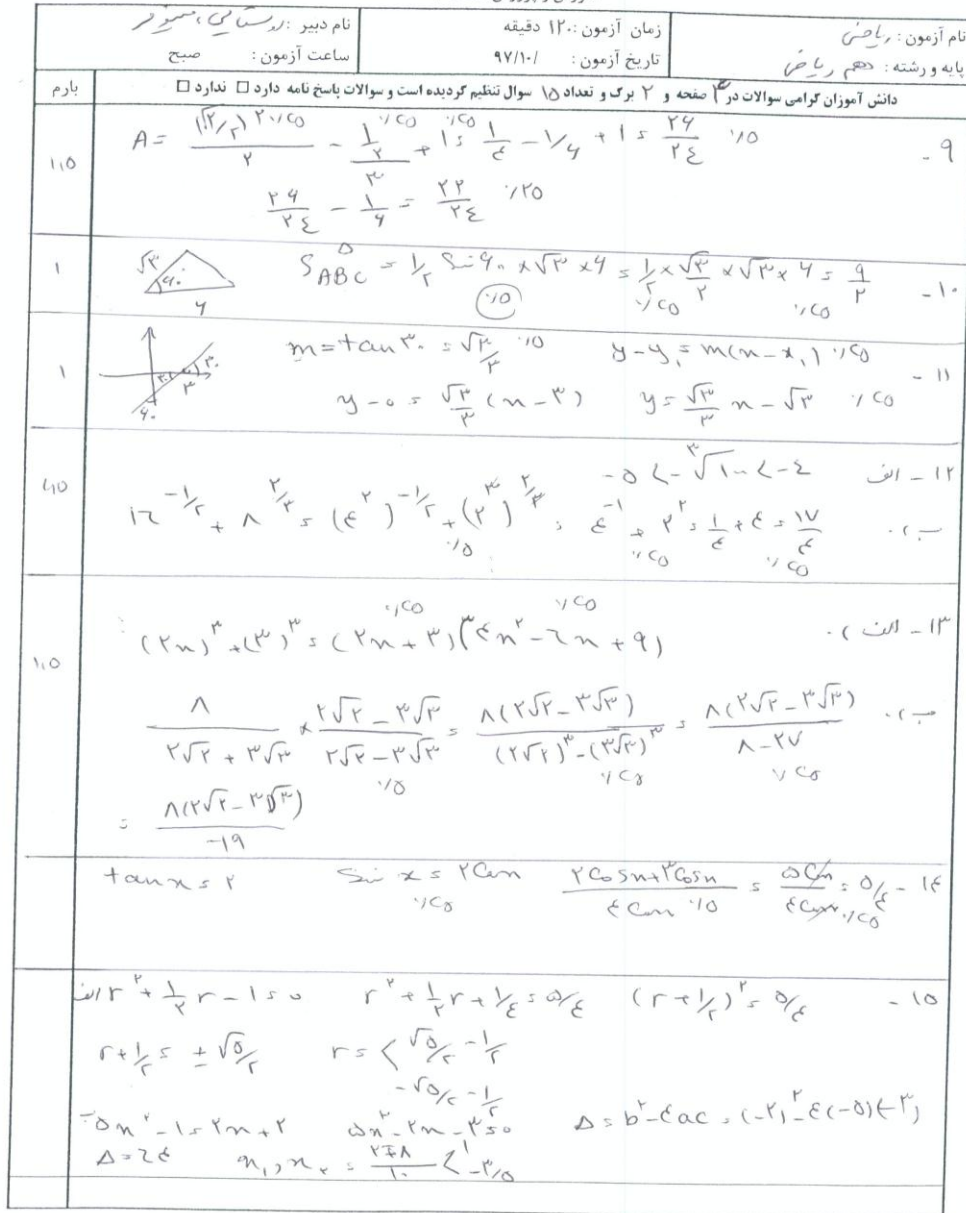 نام آزمون : ریاضی
زمان آزمون : ۱۲۰ دقیقه
نام دبیر :
پایه و رشته : دهم ریاضی
تاریخ آزمون : ۹۷/۱۰/
ساعت آزمون : صبح
دانش آموزان گرامی سوالات در ۳ صفحه و ۲ برگ و تعداد ۱۵ سوال تنظیم گردیده است و سوالات پاسخ نامه دارد □ ندارد □
بارم
۹ -
A = ((√۲/۲)^۲ ۰/۲۵)/۲ - (۱/۲)/۳ + ۱ = ۱/۴ - ۱/۶ + ۱ = ۲۶/۲۴ ۰/۵
۱,۵
۲۶/۲۴ - ۱/۶ = ۲۲/۲۴ ۰/۲۵
۱۰ - S ABC = ۱/۲ Sin ۶۰ × √۳ × ۶ = ۱/۲ × √۳/۲ × √۳ × ۶ = ۹/۲
۰/۵ ۰/۲۵ ۰/۲۵
√۳ ۶۰° ۶
۱
۱۱ - m = tan ۳۰ = √۳/۳ ۰/۵ y - y₁ = m(x - x₁) ۰/۲۵
y - ۰ = √۳/۳ (x - ۳) y = √۳/۳ x - √۳ ۰/۲۵
۳۰ ۳۰ ۳ ۶۰
۱
۱۲ - الف -۵ < -∛۱۰۰ < -۴
ب) ۱۶^(-۱/۲) + ۸^(۲/۳) = (۴^۲)^(-۱/۲) + (۲^۳)^(۲/۳) = ۴^-۱ + ۲^۲ = ۱/۴ + ۴ = ۱۷/۴
۰/۵ ۰/۲۵ ۰/۲۵
۱,۵
۱۳ - الف) (۲x)^۳ + (۳)^۳ = (۲x + ۳)(۴x^۲ - ۶x + ۹)
۰/۲۵ ۰/۲۵
۱,۵
ب) ۸/(۲√۲ + ۳√۳) × (۲√۲ - ۳√۳)/(۲√۲ - ۳√۳) = ۸(۲√۲ - ۳√۳)/((۲√۲)^۳ - (۳√۳)^۳) = ۸(۲√۲ - ۳√۳)/(۸ - ۲۷)
۰/۵ ۰/۲۵ ۰/۲۵
= ۸(۲√۲ - ۳√۳)/-۱۹
۱۴ - tan x = ۲ Sin x = ۲Cos x (۲Cosx + ۳Cosx)/(۴Cosx) = ۵Cosx/۴Cosx = ۵/۴
۰/۲۵ ۰/۵ ۰/۲۵
۱۵ -
الف r^۲ + ۱/۲ r - ۱ = ۰ r^۲ + ۱/۲ r + ۱/۴ = ۵/۴ (r + ۱/۲)^۲ = ۵/۴
r + ۱/۲ = ± √۵/۲ r = < √۵/۲ - ۱/۲
-√۵/۲ - ۱/۲
ب ۵x^۲ - ۱ = ۲x + ۲ ۵x^۲ - ۲x - ۳ = ۰ Δ = b^۲ - ۴ac = (-۲)^۲ - ۴(-۵)(-۳)
Δ = ۶۴ x₁, x₂ = (۲ ∓ ۸)/۱۰ < ۱
-۳/۵